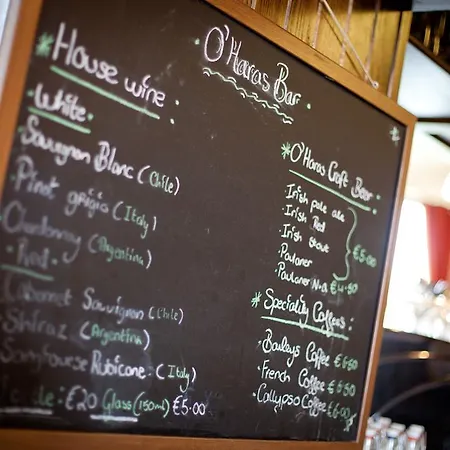 O'Haras Bar.
* House wine
. White.
. Sauvignon Blanc (Chile)
. Pinot grigio (Italy)
. Chardonnay (Argentina)
. Red.
Cabernet Sauvignon (Chile)
. Shiraz (Argentina)
. Rubicone. (Italy)
: €20 Glass (150ml) €5.00
* O'Haras Craft Beer
. Irish pale ale
. Irish Red
. Irish stout
. Paulaner €5.00
. Paulaner N-A €4.50
* Speciality Coffee's:
. Baileys Coffee €6.50
. French Coffee €6.50
. Callypso Coffee €6.00